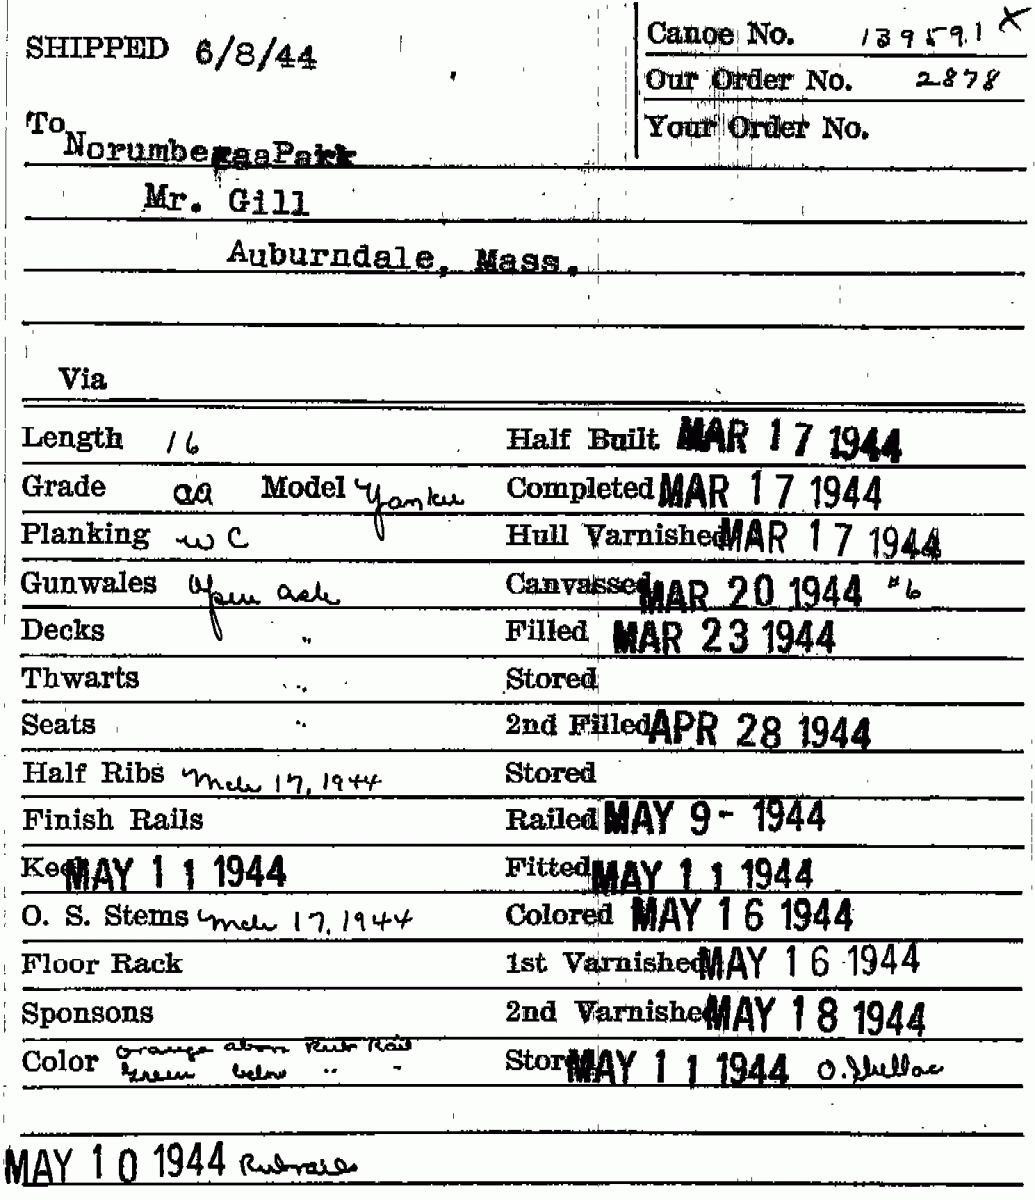 SHIPPED 6/8/44
Canoe No. 139591 X
Our Order No. 2878
Your Order No.
To Norumbegaa Park
Mr. Gill
Auburndale, Mass.
Via
Length 16 Half Built MAR 17 1944
Grade AA Model Yankee Completed MAR 17 1944
Planking W C Hull Varnished MAR 17 1944
Gunwales Open Ash Canvassed MAR 20 1944 #6
Decks " Filled MAR 23 1944
Thwarts " Stored
Seats " 2nd Filled APR 28 1944
Half Ribs Mch 17, 1944 Stored
Finish Rails Railed MAY 9- 1944
Keel MAY 11 1944 Fitted MAY 11 1944
O. S. Stems Mch 17, 1944 Colored MAY 16 1944
Floor Rack 1st Varnished MAY 16 1944
Sponsons 2nd Varnished MAY 18 1944
Color Orange above Rub Rail
Green below " " Stor MAY 11 1944 O. Shellac
MAY 10 1944 Rubrails